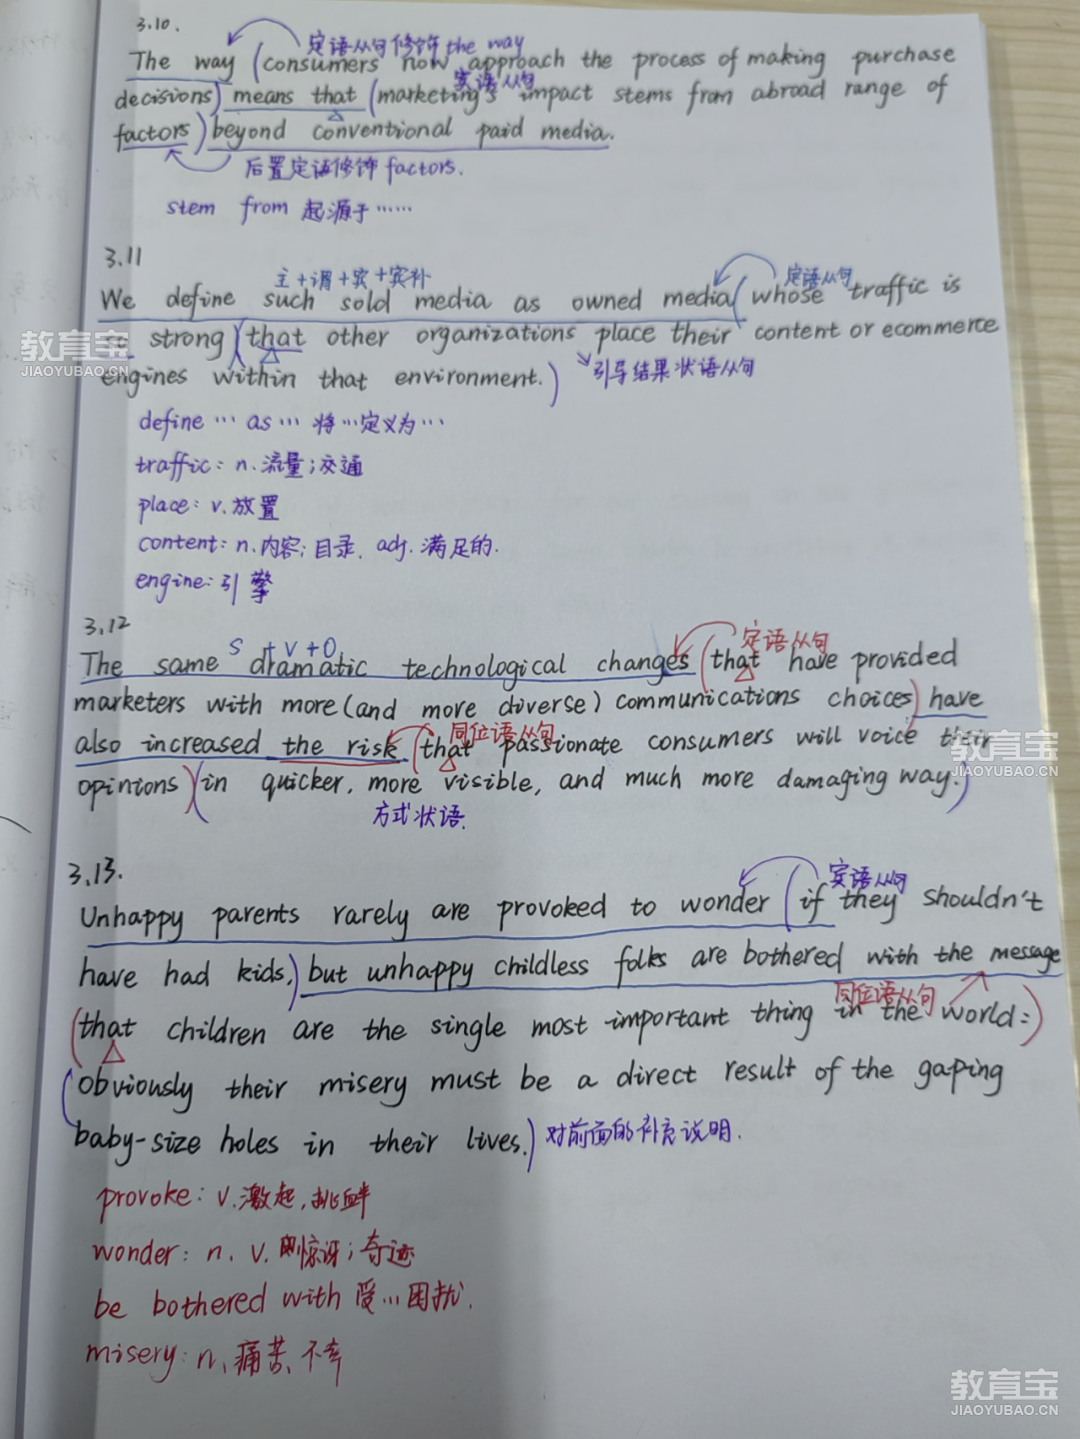 3.10.
定语从句修饰 the way
The way (consumers now approach the process of making purchase
宾语从句
decisions) means that (marketing's impact stems from abroad range of
factors) beyond conventional paid media.
后置定语修饰 factors.
stem from 起源于……
3.11
主+谓+宾+宾补 定语从句
We define such sold media as owned media (whose traffic is
so strong (that other organizations place their content or ecommerce
引导结果状语从句
engines within that environment.)
define … as … 将…定义为…
traffic: n. 流量;交通
place: v. 放置
content: n. 内容;目录. adj. 满足的.
engine: 引擎
3.12
S + V + O 定语从句
The same dramatic technological changes (that have provided
marketers with more (and more diverse) communications choices) have
同位语从句
also increased the risk (that passionate consumers will voice their
opinions) (in quicker, more visible, and much more damaging way.)
方式状语.
3.13.
宾语从句
Unhappy parents rarely are provoked to wonder (if they shouldn't
have had kids,) but unhappy childless folks are bothered with the message
同位语从句
(that children are the single most important thing in the world:)
(obviously their misery must be a direct result of the gaping
baby-size holes in their lives.) 对前面的补充说明.
provoke: v. 激起, 挑衅
wonder: n. v. 惊讶;奇迹
be bothered with 受…困扰.
misery: n. 痛苦、不幸
教育宝
JIAOYUBAO.CN
教育宝
JIAOYUBAO.CN
教育宝
JIAOYUBAO.CN